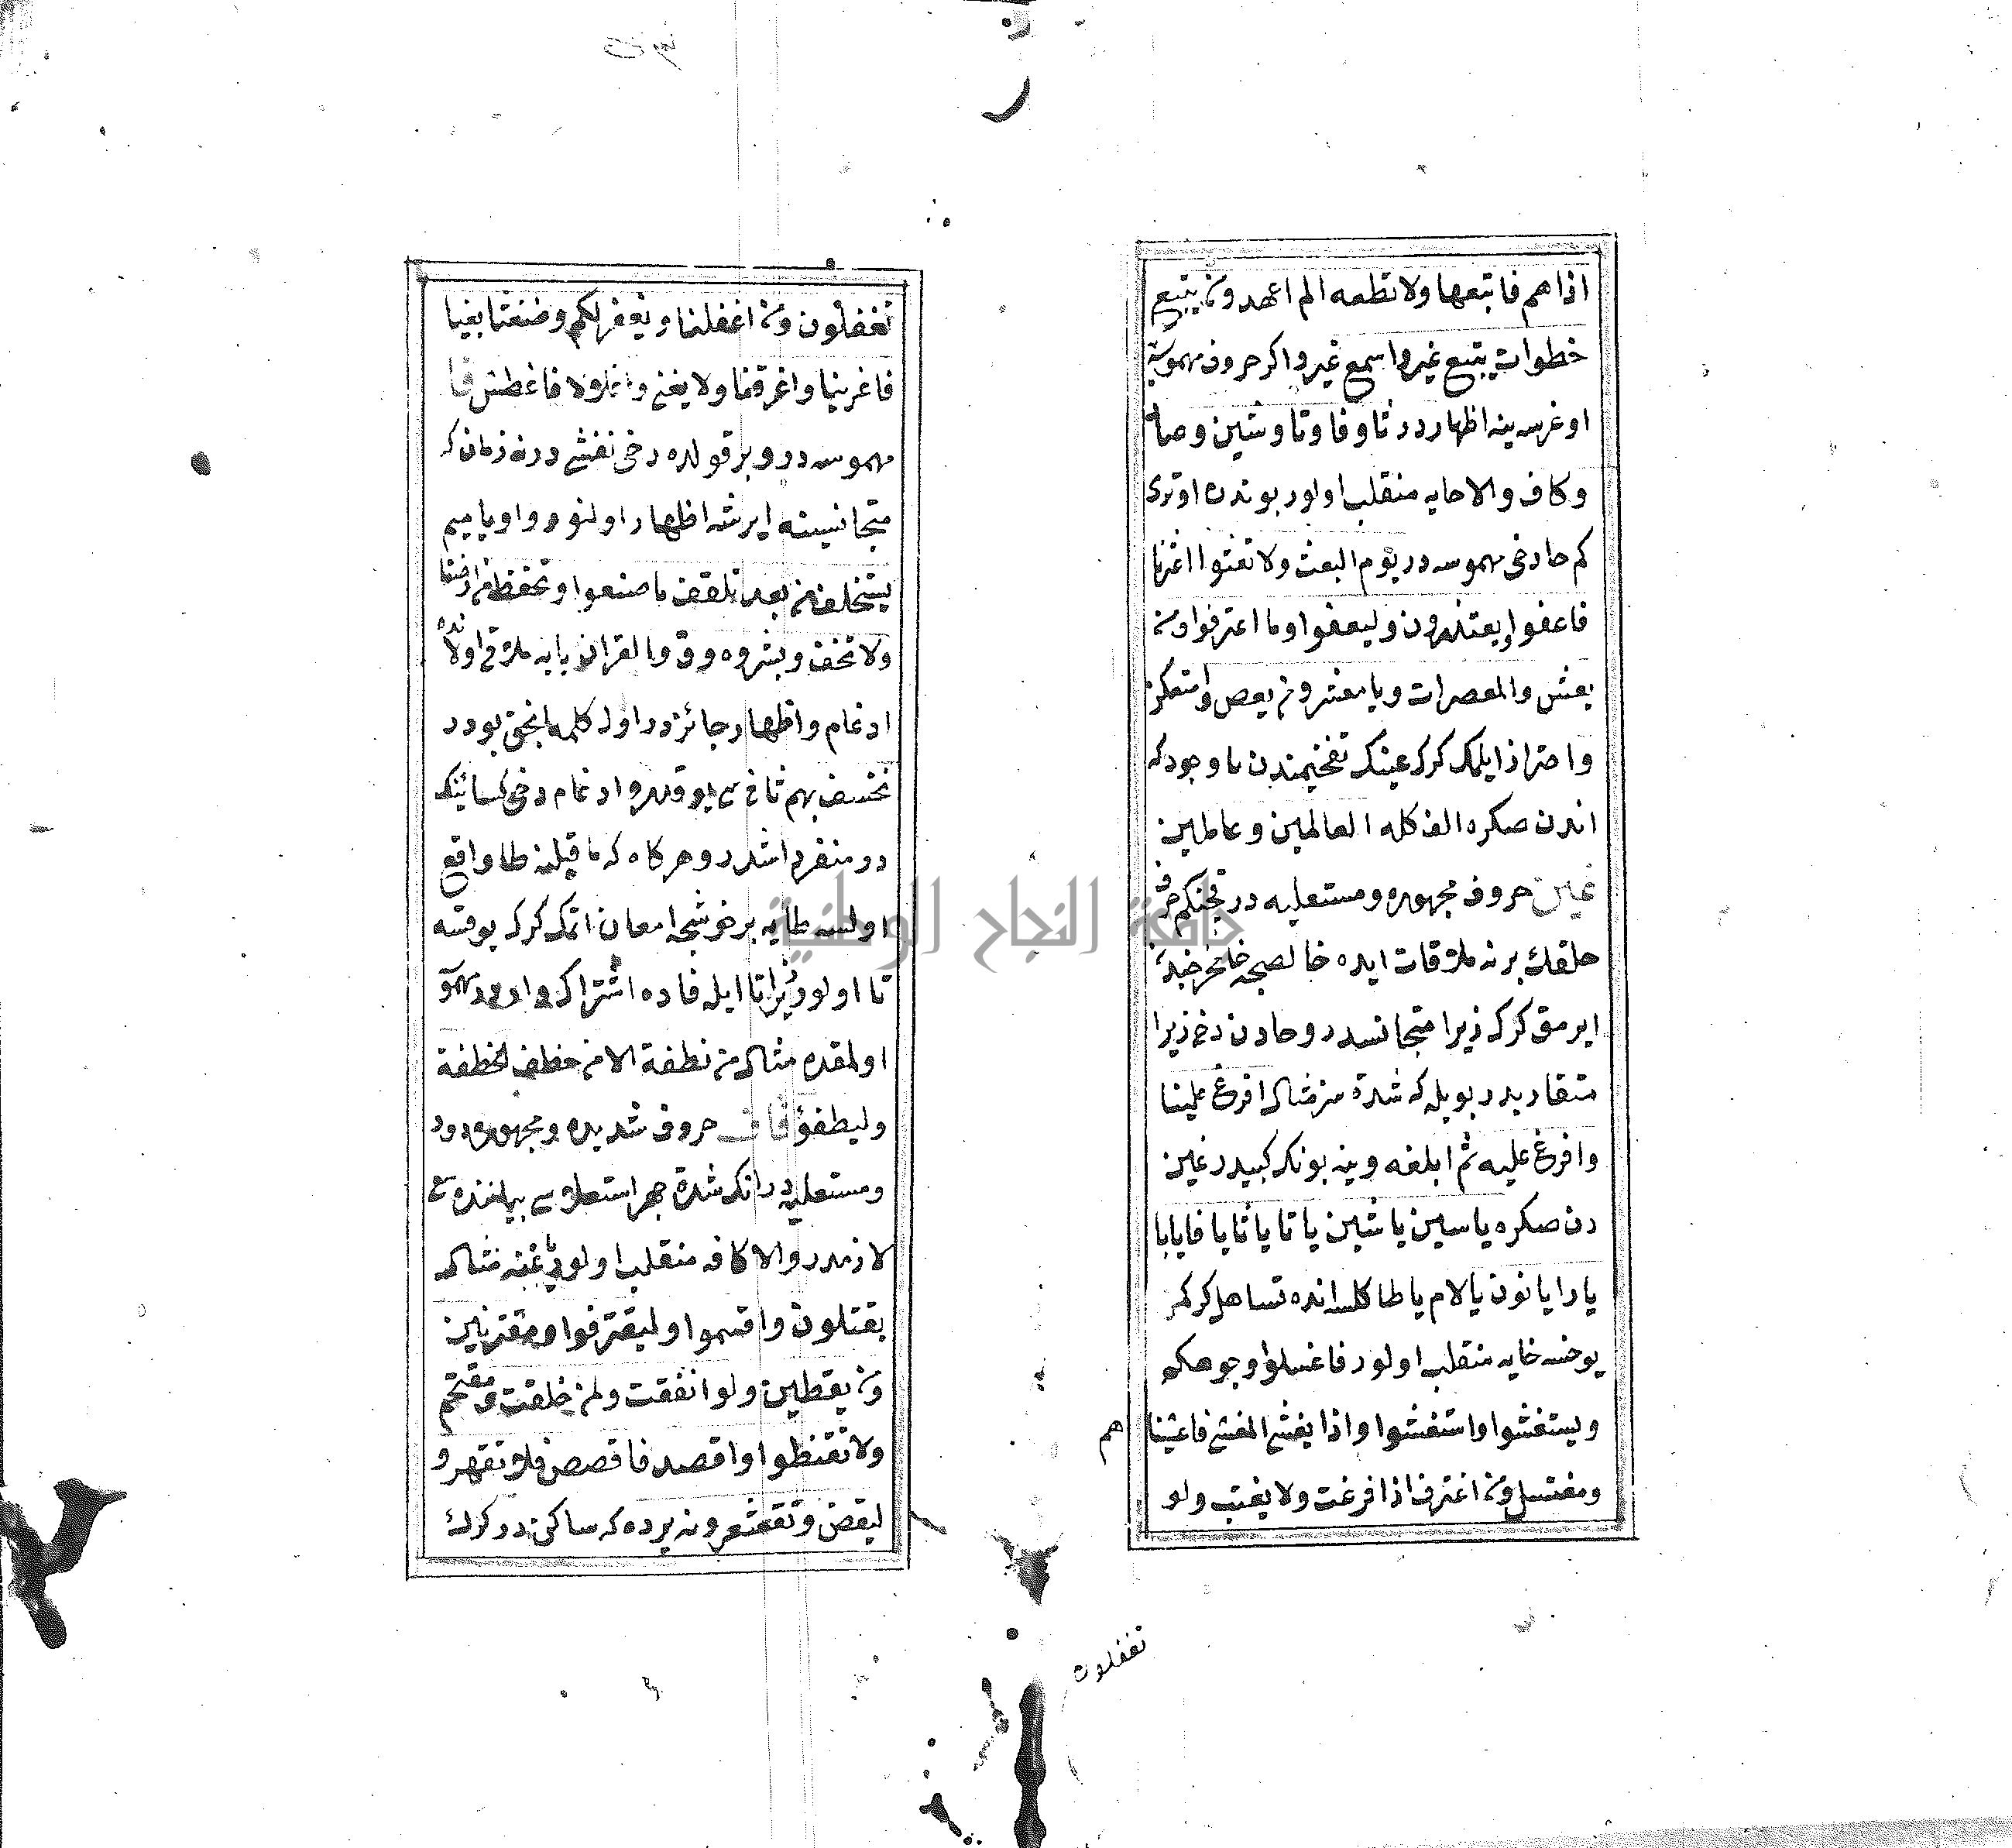 اذاهم فاتبعها ولا تطعه الم اعهد ومن يتبع
خطوات يتبع غير واسمع غير واكر حروف مهموسه
اوغرسه ينه اظهار در ثا وفا وتا وشين وصاد
وكاف والا حايه منقلب اولور بوندن اوترى
كم حا دخى مهموسه در يوم البعث ولا تعثوا اعثرنا
فاعفوا يعتذرون وليعفوا وما اعترفوا ومن
يعش والمعصرات ويا معشر ومن يعص واستعكن
واحتراز ايلمك كرك عينك تفخيمندن با وجود كه
اندن صكره الف كله العالمين وعاملين
غين حروف مجهوره ومستعليه در
حلقك برنه ملاقات ايده خالصجه
ايرمق كرك زيرا متجانسدر وحادن دخى زيرا
متقاربدر بويله كه شدة مثال افرغ علينا
وافرغ عليه ثم ابلغه وينه بونك كبيدر غين
دن صكره يا سين يا شين يا تا يا ثا يا فا يا با
يا را يا نون يا لام يا طا كلسه انده تساهل كركمز
يوخسه خايه منقلب اولور فاغسلوا وجوهكم
ويستغشوا واستغشوا واذا يغشى المغشى فاغشينا
هم
ومغتسل ومن اغترف اذا فرغت ولا يغتب ولو
تغفلون
تغفلون ومن اغفلنا ويغفر لكم وضغثا بغيا
فاغرينا واغرقنا ولا يغنى ولا فاغطش فا
مهموسه در وبر قولده دخى تفشى در نه زمان كه
متجانسينه ايرشه اظهار اولنور واو يا ميم
يستخلف من بعد تلقف ما صنعوا وتخفظ من ارضنا
ولا تخف وبشروه وق والقران يايه ملاقى اولاندە
ادغام واظهار جائزدر اول كلمه انجق بودر
نخسف بهم ثانى سى يوقدر وادغام دخى كسائينك
در منفردا شدر وهركاه كه ما قبلنه طا واقع
اولسه طايه بر خوشجا امعان اتمك كرك يوقسه
تا اولور زيرا تا ايله فا ده اشتراك وارد
اولمقده مثال من نطفة الا من خطف الخطفة
وليطفؤ قاف حروف شديده ومجهوره دور
ومستعليه در انك شدة جهر استعلاسى بيانده سعى
لازمدر والا كافه منقلب اولور غنه مثال
يقتلون واقسموا وليقترفوا ومقترنين
ومن يقطين ولو انفقت ولمن خلقت ومقتحم
ولا تقنطوا واقصد فاقصص فلا تقهر و
ليقض وتقشعر ونه يرده كه ساكن در كرك
جامعة النجاح الوطنية